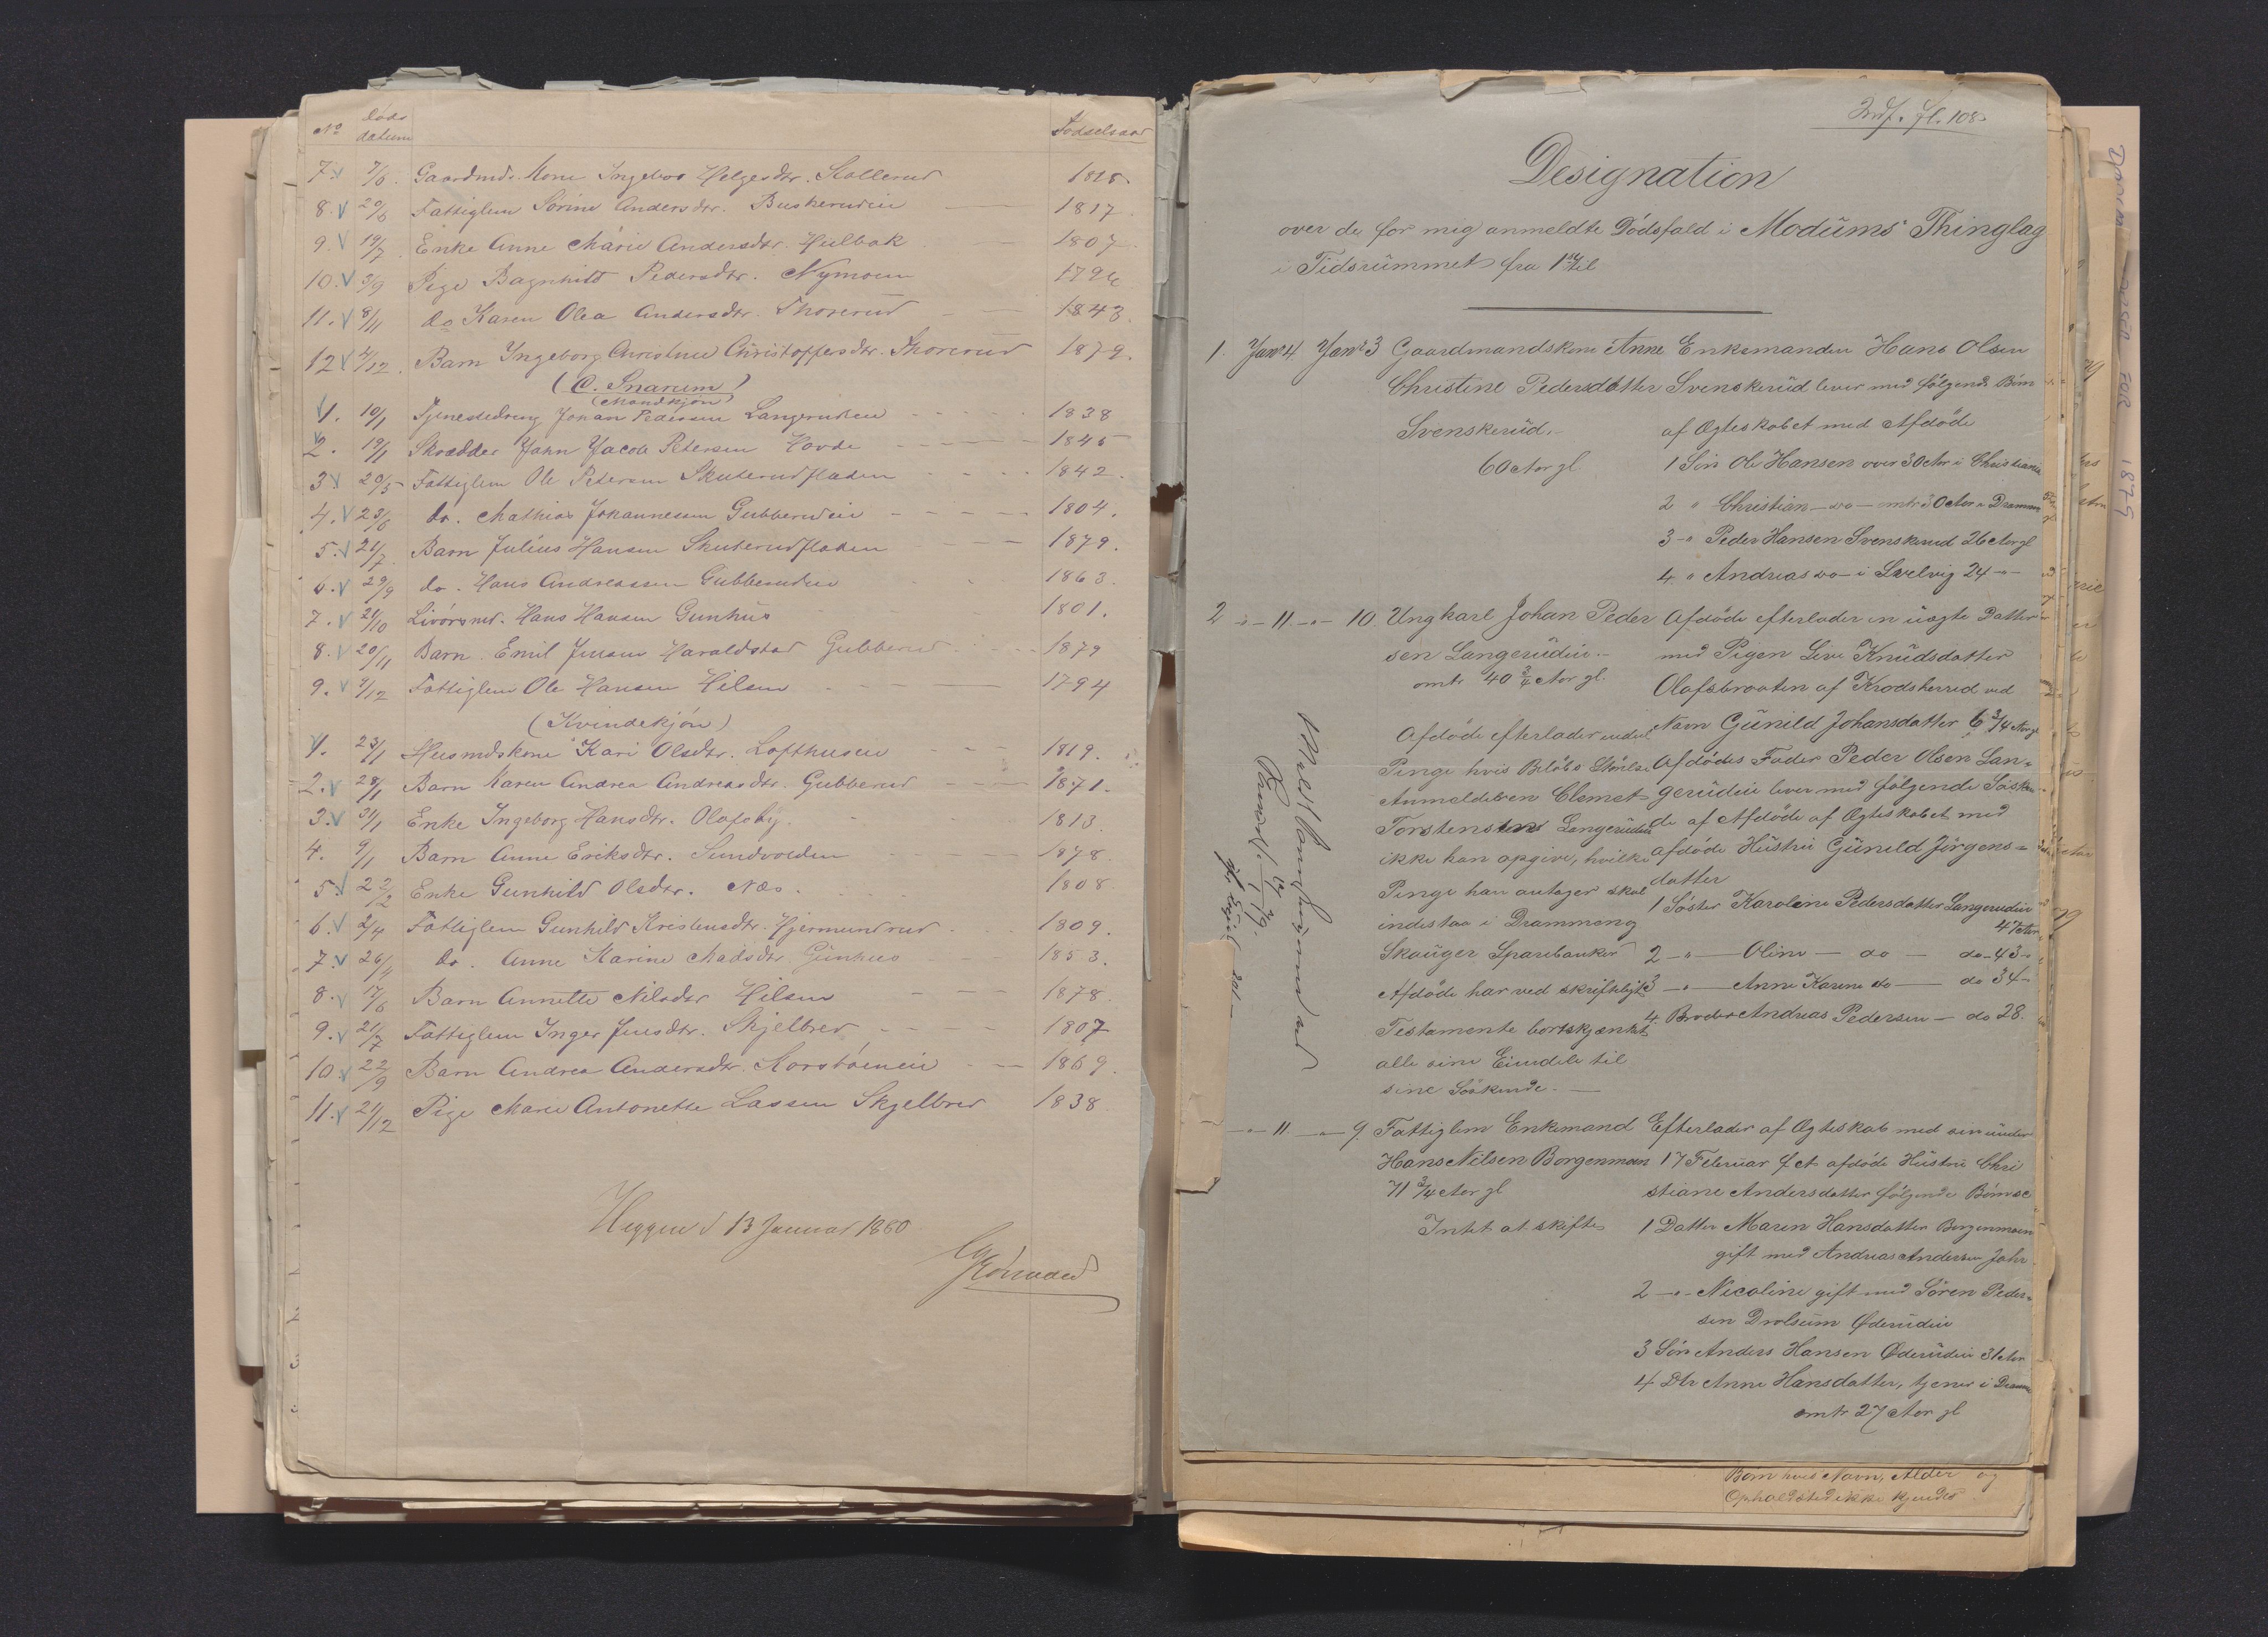 No Døds datum Fødselsaar
7. 7/6. Gaardmds. Kone Ingebor Helgesdtr. Kollerud 1825
8. 20/6 Fattiglem Sørine Andersdtr. Buskerudeie 1817
9. 19/7 Enke Anne Marie Andersdtr. Hulbak 1807
10. 5/9 Pige Ragnhild Pedersdtr. Nymoen
11. 8/11 do Karen Olea Andersdtr. Thorerud 1843.
12 4/12. Barn Ingeborg Christine Christoffersdtr. Thorerud 1879.
(C. Snarum)
(Mandkjøn)
1. 10/1 Tjenestedreng Johan Pedersen Langerudeie 1838
2. 19/1 Skrædder John Jacob Petersen Hovde 1845
3. 20/5 Fattiglem Ole Petersen Skuterudflaten 1842.
4. 23/6 do. Mathias Johannesen Gubberudeie 1804.
5. 21/7 Barn Julius Hansen Skuterudflaten 1879.
6. 29/9 do. Hans Andreassen Gubberudeie 1863.
7. 21/10 Livørsmd. Hans Hansen Gunhus 1801.
8. 20/11 Barn. Emil Jensen Haraldstad Gubberud 1879
9. 9/12 Fattiglem Ole Hansen Hilsen 1794
(Kvindekjøn)
1. 23/1 Husmdskone Kari Olsdtr. Lofthuseie 1819.
2. 28/1 Barn Karen Andrea Andreasdtr. Gubberud 1871.
3. 31/1 Enke Ingeborg Hansdtr. Olafsby. 1813.
4. 9/1 Barn Anne Eriksdtr. Sundvolden 1878.
5. 22/2 Enke Gunhild Olsdtr. Næs. 1808
6. 2/4 Fattiglem Gunhild Kristensdtr. Hjermundrud 1809.
7. 26/4 do. Anne Karine Madsdtr. Gunhus 1853.
8. 17/6 Barn Annette Nilsdtr Hilsen 1878
9. 21/7 Fattiglem Inger Jensdtr. Skjelbred 1807
10. 22/9 Barn Andrea Andersdtr. Korsbøeneie 1869.
11. 21/12 Pige Marie Antonette Lassen Skjelbred 1838
Heggen d 13 Januar 1880.
Indf. fl. 108.
Designation
over de for mig anmeldte Dødsfald i Modums Thinglag
i Tidsrummet fra 1ste til
1. Janr 4 Janr 3 Gaardmandskone Anne Enkemanden Hans Olsen
Christine Pedersdatter Svenskerud lever med følgende Børn
Svenskerud. af Ægteskabet med Afdøde
60 Aar gl 1 Søn Ole Hansen over 30 Aar i Christiania
2 " Christian - do - omtr 30 Aar i Drammen
3 - " Peder Hansen Svenskerud 26 Aar gl
4. " Andreas do - i Svelvig 24 - " -
2 - " - 11. - " - 10. Ungkarl Johan Peder Afdøde efterlader en uægte Datter
sen Langerudeie. - med Pigen Live Knudsdatter
omtr 40 3/4 Aar gl. Olafsbraaten af Krodsherred ved
Afdøde efterlader endeel Navn Gunild Johansdatter 6 3/4 Aar gl
Penge hvis Beløbs Størelse Afdødes Fader Peder Olsen Lan=
Anmelderen Clemet gerudeie lever med følgende Søsken
Torstensens Langerudeie de af Afdøde af Ægteskabet med
ikke kan opgive, hvilke afdøde Hustru Gunild Jørgens=
Penge han antager skal datter
indestaa i Drammen og 1 Søster Karoline Pedersdatter Langerudeie 47 Aar
Skouger Sparebanker 2 - " - Oline - do - do - 43 -
Afdøde har ved skriftligt 3 - " - Anne Karine do - do 34 -
Testamente bortskjænket 4. Broder Andreas Pedersen - do 28.
alle sine Eiendele til
sine Søskende. -
- " - 11. - " - 9. Fattiglem Enkemand Efterlader af Ægteskab med sin under
Hans Nilsen Borgenmoen 17 Februar f. A. afdøde Hustru Chri
71 3/4 Aar gl stiane Andersdatter følgende Børn
Intet at skifte 1 Datter Maren Hansdatter Borgenmoen
gift med Andreas Andersen Jahr
2 - " - Nicoline gift med Søren Peder=
sen Drolsum Øderudeie
3 Søn Anders Hansen Øderudeie 31 Aar
4 Dtr Anne Hansdatter, tjener i
omtr 27 Aar gl
Børn hvis Navn, Alder og
Opholdsted ikke kjendes
1879